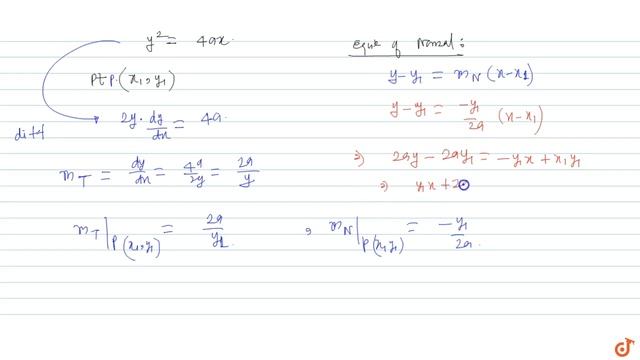 y² = 4ax.
pt P. (x₁, y₁)
diff
2y. dy/dx = 4a.
m_T = dy/dx = 4a/2y = 2a/y
m_T|_P(x₁,y₁) = 2a/y₁.
, m_N|_P(x₁y₁) = -y₁/2a.
Equn of Normal :
y-y₁ = m_N (x-x₁)
y-y₁ = -y₁/2a (x-x₁)
⇒ 2ay - 2ay₁ = -y₁x + x₁y₁
⇒ y₁x + 2a